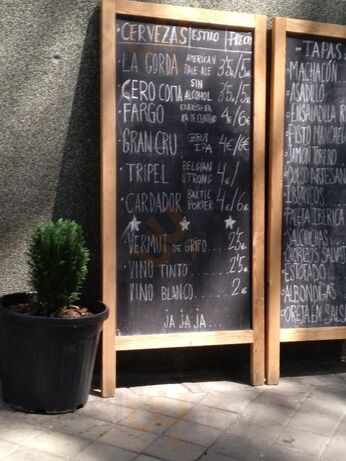 CERVEZAS ESTILO PRECIO
LA GORDA AMERICAN PALE ALE 3'5€/5€
CERO COMA SIN ALCOHOL 3'5€/5€
FARGO ENGLISH PA 4€/6€
GRAN CRU BRUT IPA 4€/6€
TRIPEL BELGIAN STRONG 4€/
CARDADOR BALTIC PORTER 4€/6€
VERMUT DE GRIFO... 2'5€
VINO TINTO..... 2'5€
VINO BLANCO..... 2€
JA JA JA...
TAPAS
MACHACÓN
ASADILLO
ENSALADILLA
PISTO MANCHE
JAMÓN TORERO
QUESO ARTESAN
IBÉRICOS
PALETA IBÉRICA
SALCHICHAS
CHORIZOS
ESTOFADO
ALBÓNDIGAS
OREJA EN SALSA